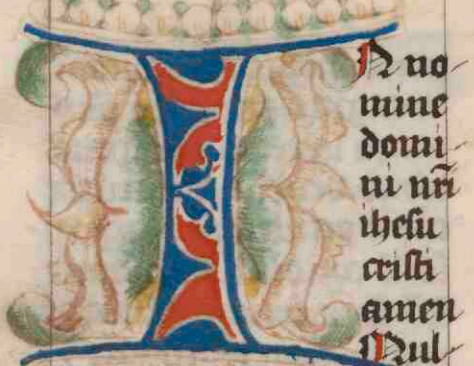 IN no-
mine
domi-
ni nr̃i
ihesu
cristi
amen
Mul-